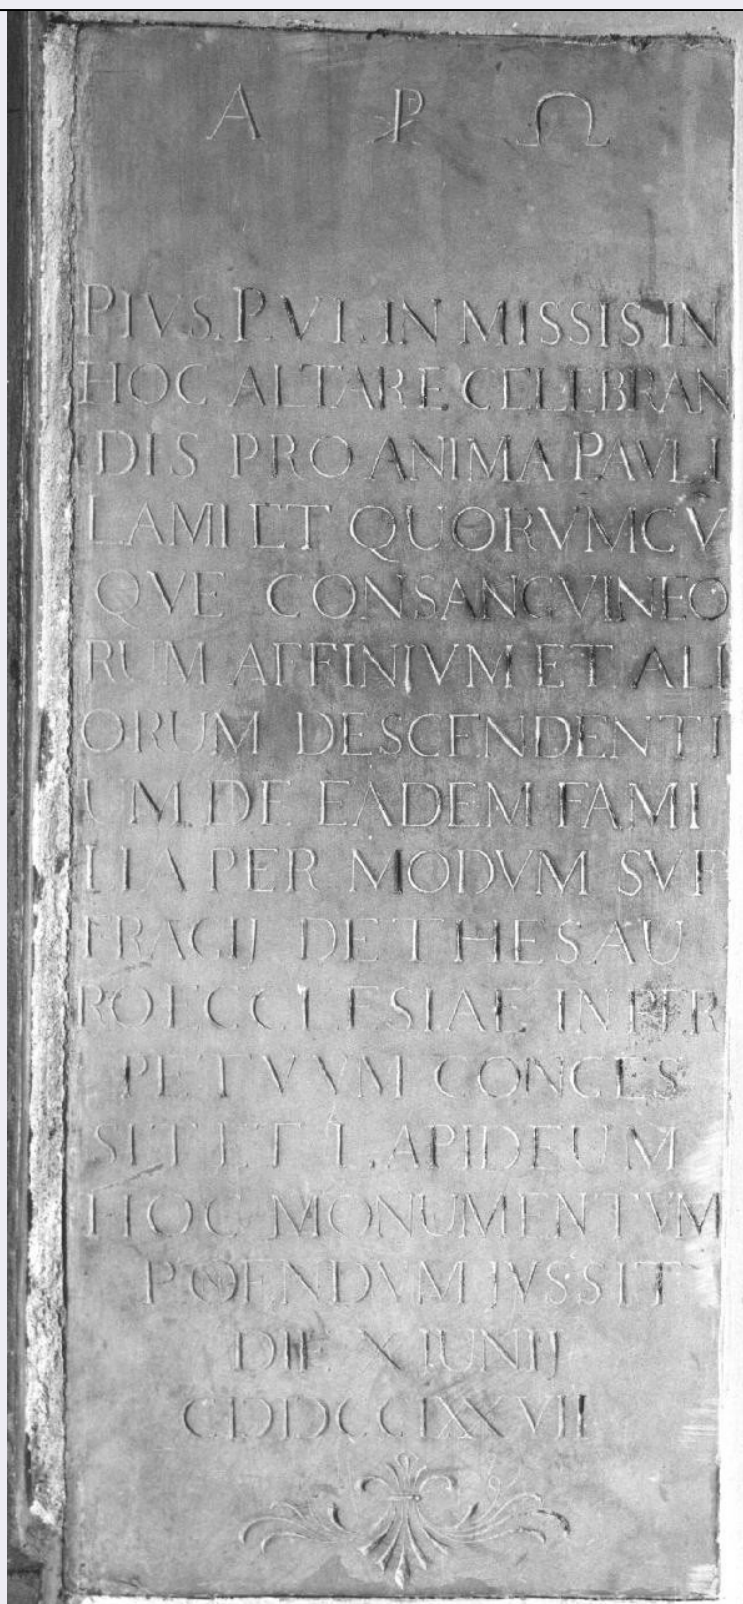 A ☧ Ω
PIVS. P. VI. IN MISSIS IN
HOC ALTARE CELEBRAN
DIS PRO ANIMA PAVLI
LAMI ET QUORVMCV
QVE CONSANGVINEO
RUM AFFINIVM ET ALI
ORUM DESCENDENTI
UM DE EADEM FAMI
LIA PER MODVM SVF
FRAGIJ DE THESAU
RO ECCLESIAE IN PER
PETVVM CONCES
SIT ET LAPIDEUM
HOC MONUMENTVM
PONENDVM JVSSIT
DIE X IUNIJ
CDDCCLXXVII